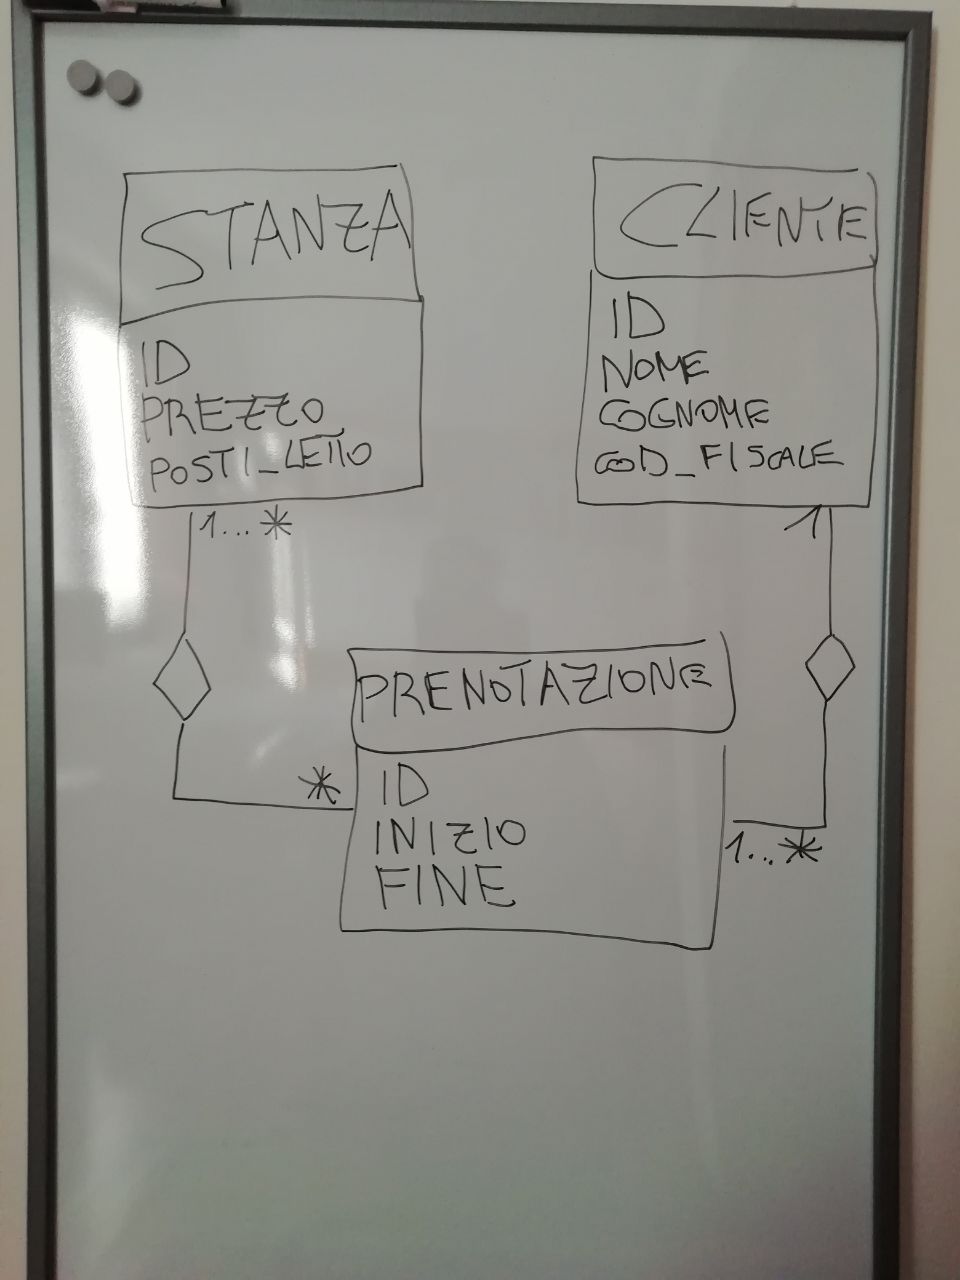 STANZA
ID
PREZZO
POSTI_LETTO
1...*
CLIENTE
ID
NOME
COGNOME
COD_FISCALE
1
PRENOTAZIONE
*
ID
INIZIO
FINE
1...*